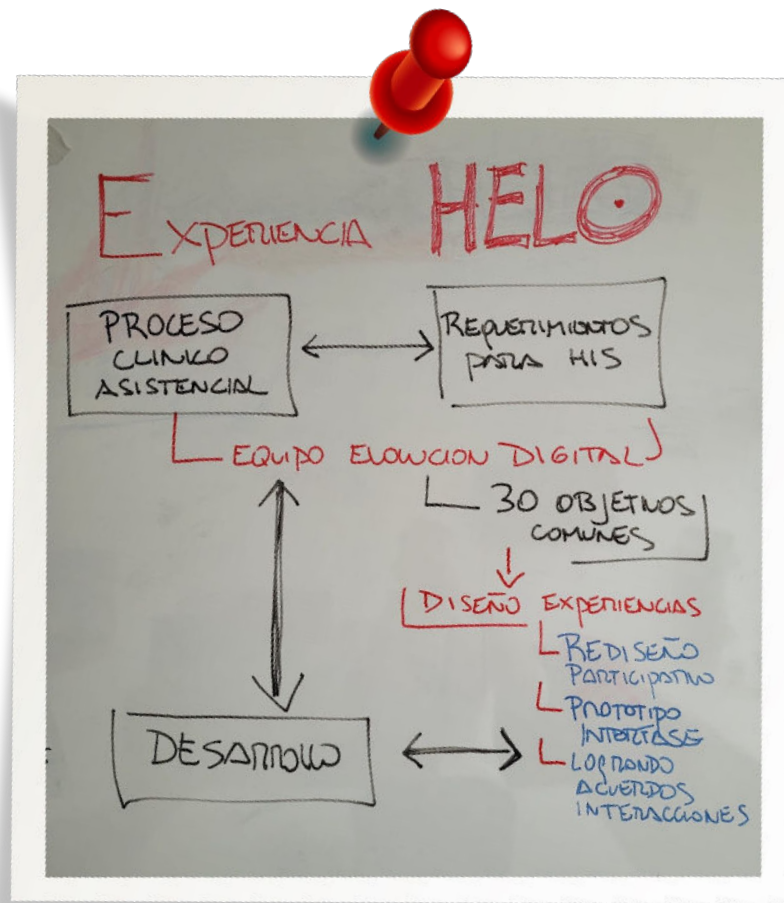 EXPERIENCIA HELO
PROCESO
CLINICO
ASISTENCIAL
REQUERIMIENTOS
PARA HIS
EQUIPO EVOLUCION DIGITAL
30 OBJETIVOS
COMUNES
DISEÑO EXPERIENCIAS
REDISEÑO
PARTICIPATIVO
PROTOTIPO
INTERFASE
LOGRANDO
ACUERDOS
INTERACCIONES
DESARROLLO